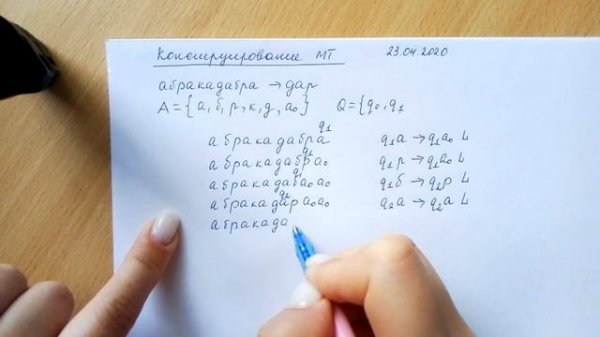 Конструирование МТ 23.04.2020
абракадабра → дар
A = {а, б, р, к, д, a₀} Q = {q₀, q₁
q₁
абракадабра q₁a → q₁a₀ L
q₁
абракадабрa₀ q₁р → q₁a₀ L
q₁
абракадабa₀a₀ q₁б → q₂р L
q₂
абракадарa₀a₀ q₂a → q₂a L
абракада